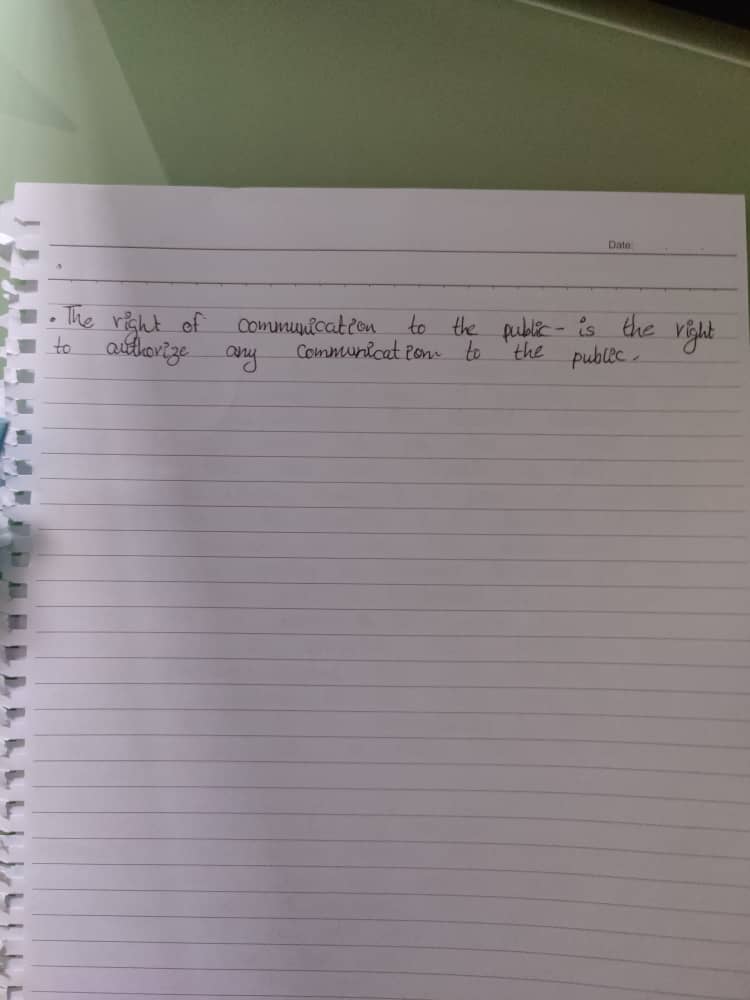 Date:
• The right of communication to the public - is the right
to authorize any communication to the public.